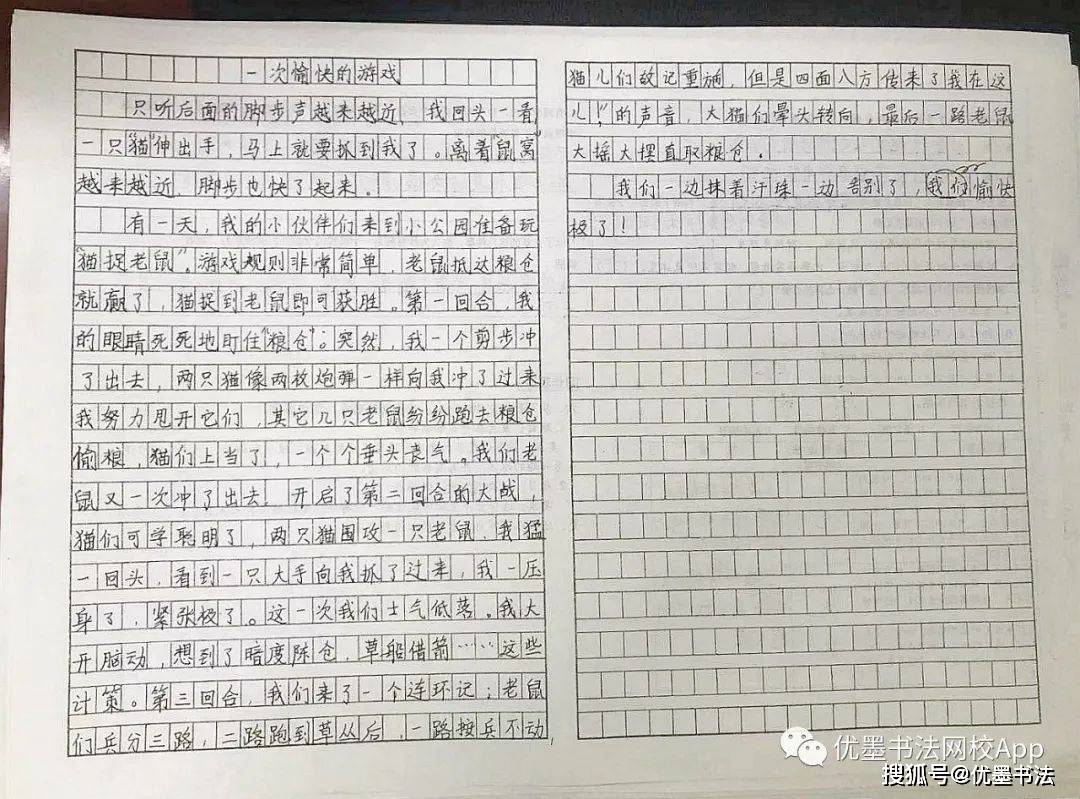 一次愉快的游戏
只听后面的脚步声越来越近，我回头一看，
一只“猫”伸出手，马上就要抓到我了。离着“鼠窝”
越来越近，脚步也快了起来。
有一天，我的小伙伴们来到小公园准备玩
“猫捉老鼠”。游戏规则非常简单，老鼠抵达粮仓
就赢了，猫捉到老鼠即可获胜。第一回合，我
的眼睛死死地盯住“粮仓”。突然，我一个剪步冲
了出去，两只猫像两枚炮弹一样向我冲了过来
我努力甩开它们，其它几只老鼠纷纷跑去粮仓
偷粮，猫们上当了，一个个垂头丧气。我们老
鼠又一次冲了出去。开启了第二回合的大战，
猫们可学聪明了，两只猫围攻一只老鼠，我猛
一回头，看到一只大手向我抓了过来，我一压
身了，紧张极了。这一次我们士气低落。我大
开脑动，想到了暗度陈仓，草船借箭……这些
计策。第三回合，我们来了一个连环记；老鼠
们兵分三路，二路跑到草丛后，一路按兵不动
猫儿们故记重施，但是四面八方传来了我在这
儿！”的声音，大猫们晕头转向，最后一路老鼠
大摇大摆直取粮仓。
我们一边抹着汗珠一边告别了，我们愉快
极了！
优墨书法网校App
搜狐号@优墨书法